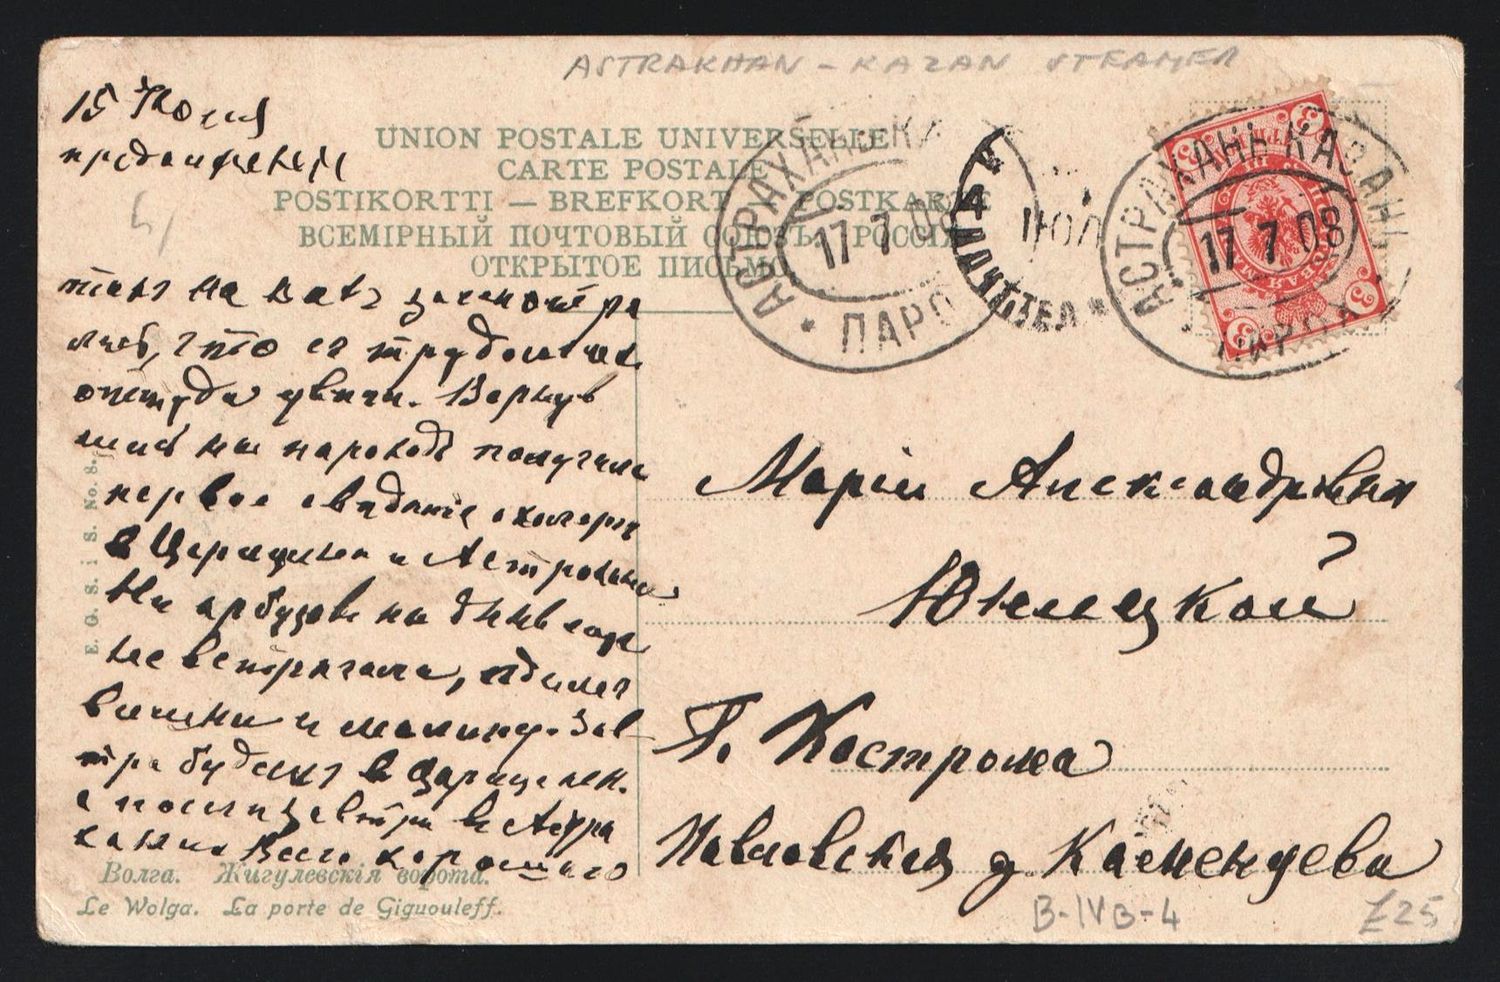 ASTRAKHAN - KAZAN STEAMER
15 Июля
продолжение
UNION POSTALE UNIVERSELLE
CARTE POSTALE
POSTIKORTTI — BREFKORT — POSTKARTE
ВСЕМІРНЫЙ ПОЧТОВЫЙ СОЮЗЪ. РОССІЯ
ОТКРЫТОЕ ПИСЬМО.
АСТРАХАНЬ-КА
17 7 08
ПАРО
ПОЧТ ТЕЛ
АСТРАХАНЬ-КАЗАНЬ
17 7 08
на васъ
лись, что съ трудом
оттуда ушли. Вернув
шись на пароходъ получили
первое свѣдѣніе о холерѣ
в Царицынѣ и Астрахани
Ни арбузов ни дынь еще
не встрѣчали, ѣдимъ
вишни и малину. Зав
тра будемъ в Царицынѣ.
а послѣзавтра в Астра
хани Всего хорошаго
Маріи Александровнѣ
Юницкой
Г. Кострома
Павловская д. Каменцева
E. G. S. i S. No. 8.
Волга. Жигулевскія ворота.
Le Wolga. La porte de Giguouleff.
B-IVB-4
£25